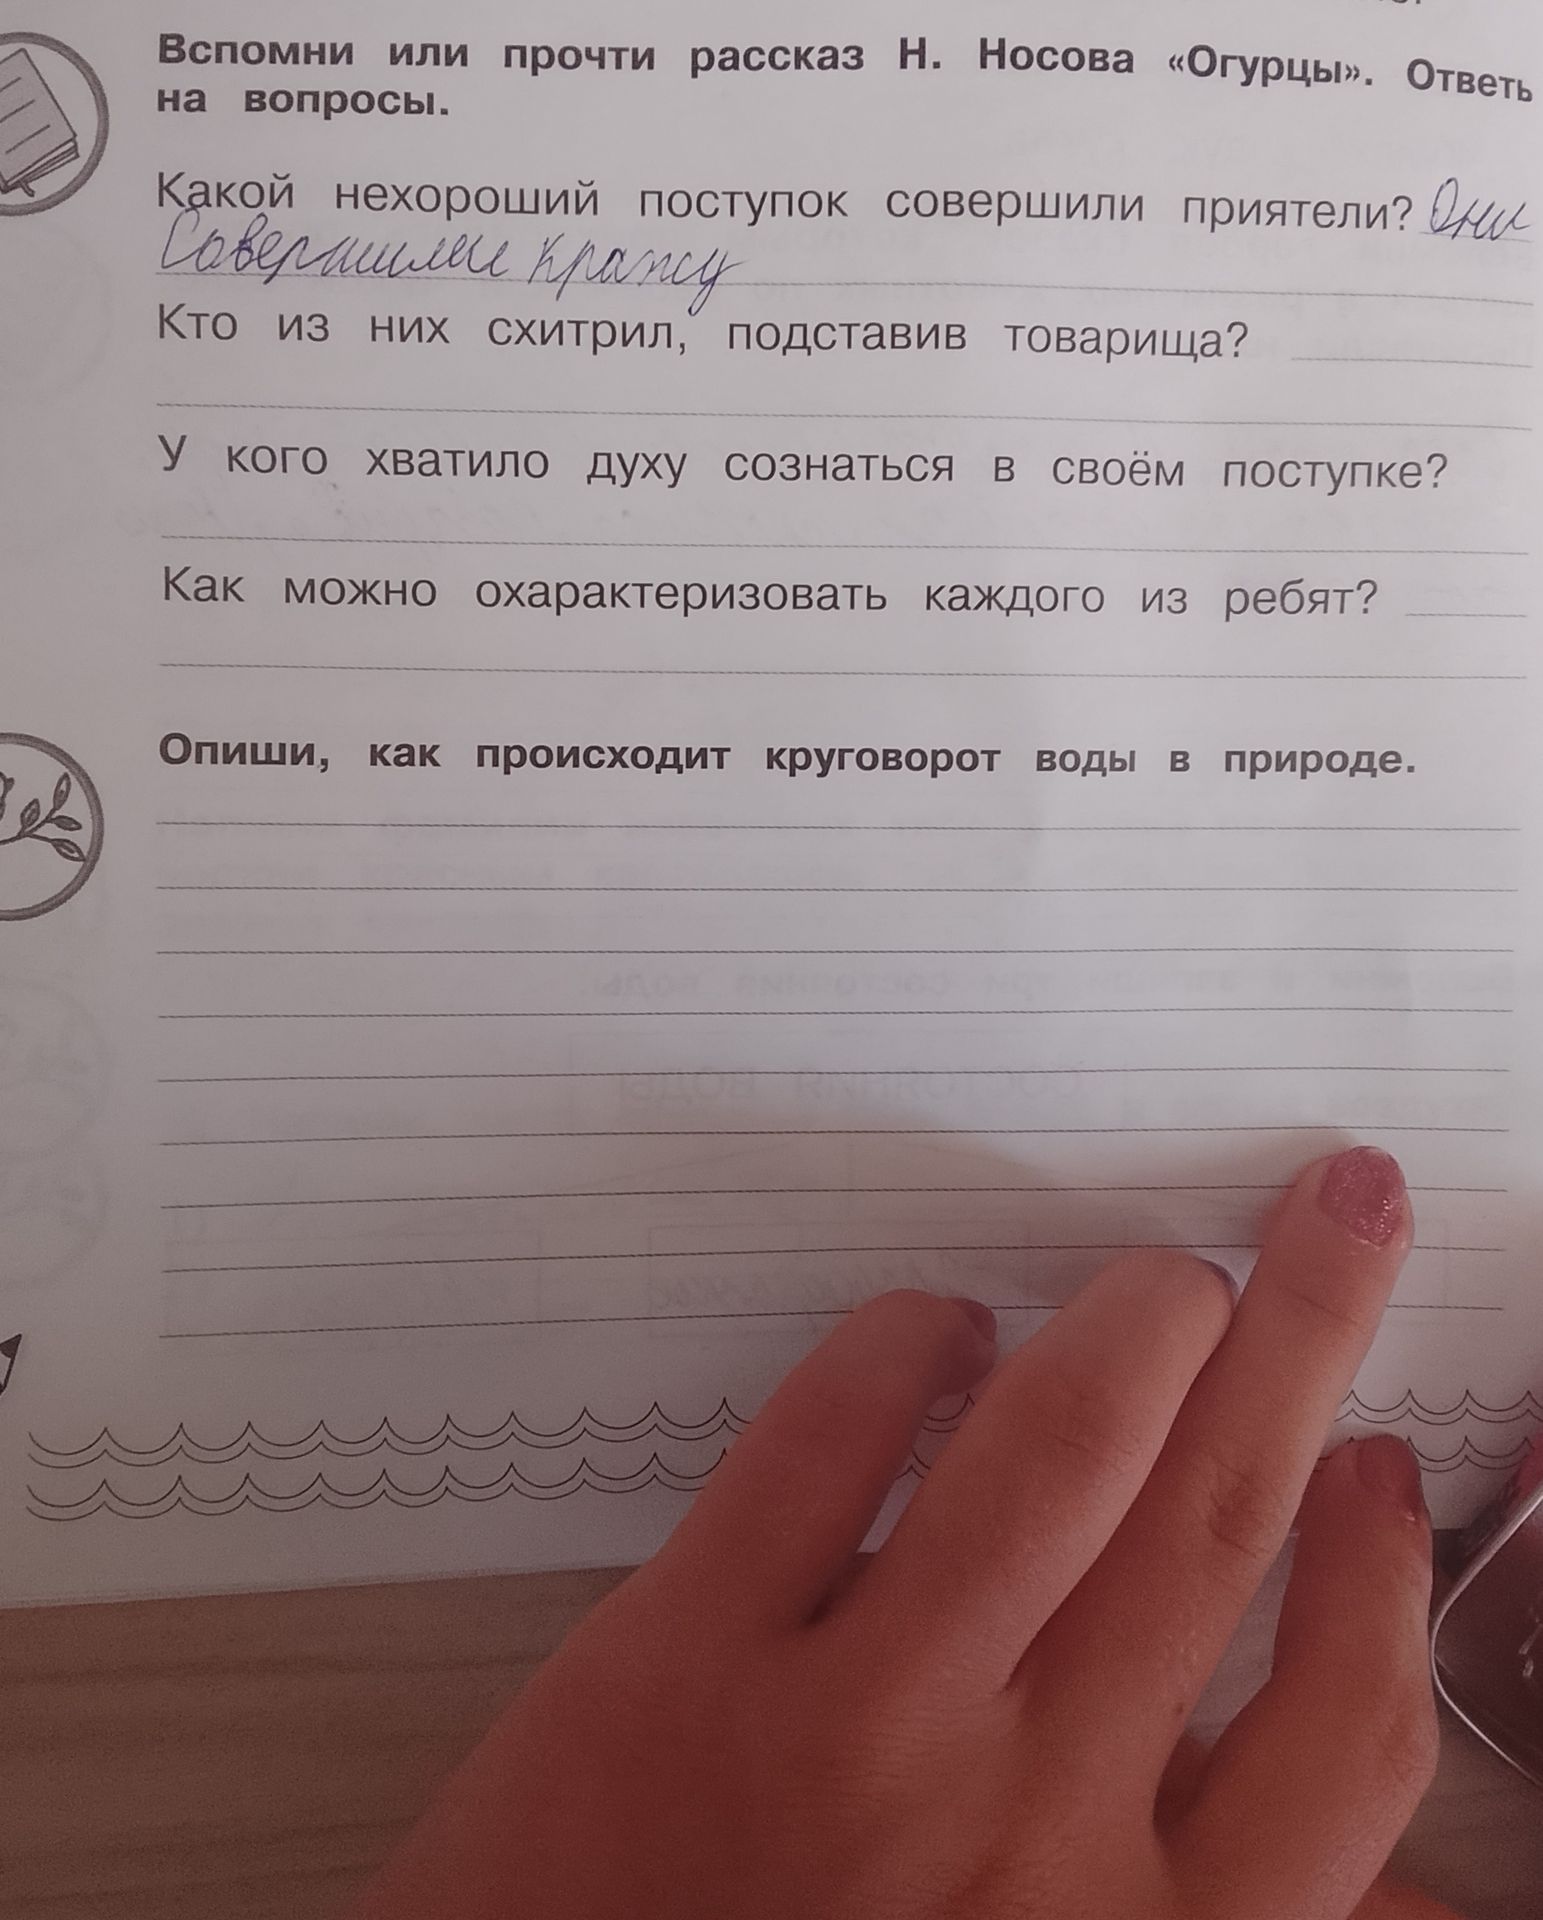 Вспомни или прочти рассказ Н. Носова «Огурцы». Ответь
на вопросы.
Какой нехороший поступок совершили приятели? Они
Совершили кражу
Кто из них схитрил, подставив товарища?
У кого хватило духу сознаться в своём поступке?
Как можно охарактеризовать каждого из ребят?
Опиши, как происходит круговорот воды в природе.
СОСТОЯНИЯ ВОДЫ